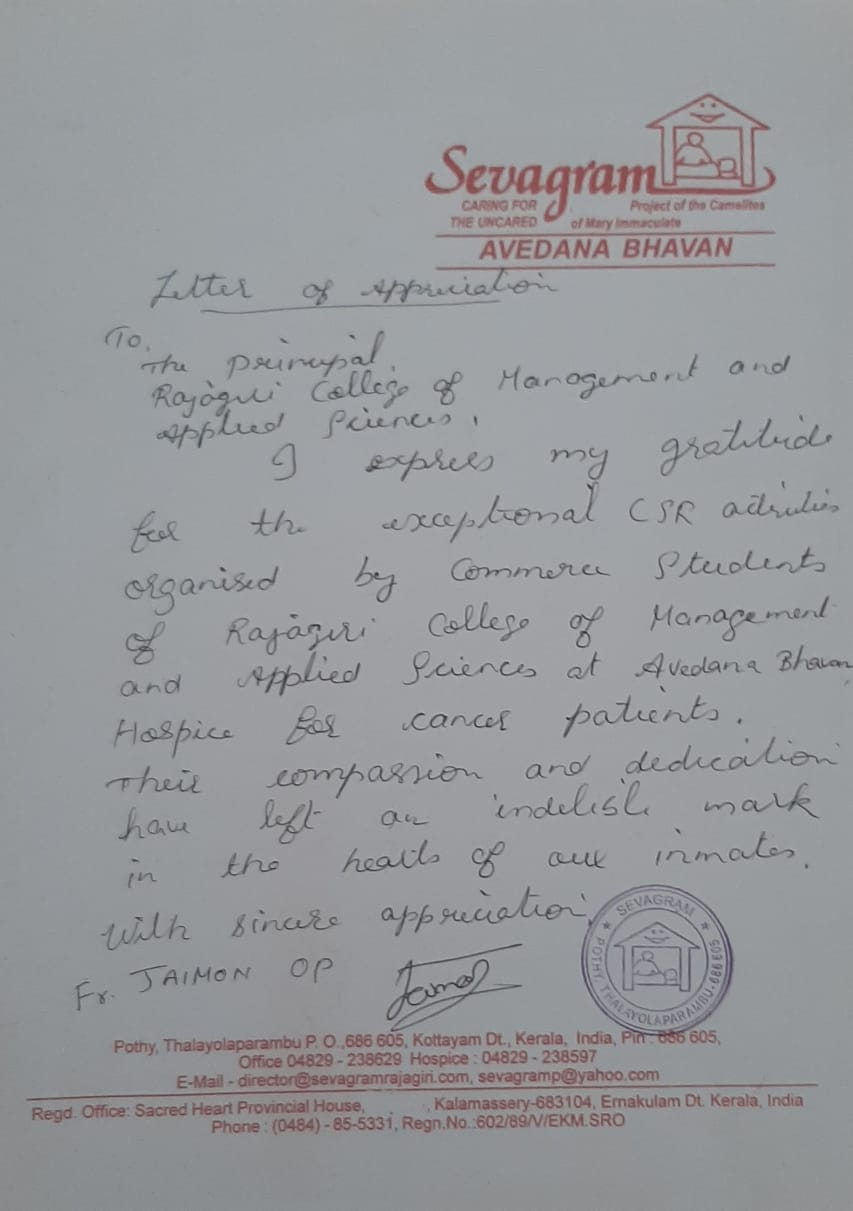 Sevagram
CARING FOR THE UNCARED
Project of the Camelites of Mary Immaculate
AVEDANA BHAVAN
Letter of Appreciation
To,
The principal,
Rajagiri College of Management and
Applied Sciences,
I express my gratitude
for the exceptional CSR activities
organised by Commerce Students
of Rajagiri College of Management
and Applied Sciences at Avedana Bhavan
Hospice for cancer patients.
Their compassion and dedication
have left an indelible mark
in the hearts of our inmates.
With sincere appreciation,
Fr. JAIMON OP
SEVAGRAM
POTHY, THALAYOLAPARAMBU-686 605
Pothy, Thalayolaparambu P. O.,686 605, Kottayam Dt., Kerala, India, Pin : 686 605,
Office 04829 - 238629 Hospice : 04829 - 238597
E-Mail - director@sevagramrajagiri.com, sevagramp@yahoo.com
Regd. Office: Sacred Heart Provincial House, , Kalamassery-683104, Ernakulam Dt. Kerala, India
Phone : (0484) - 85-5331, Regn.No.:602/89/V/EKM.SRO